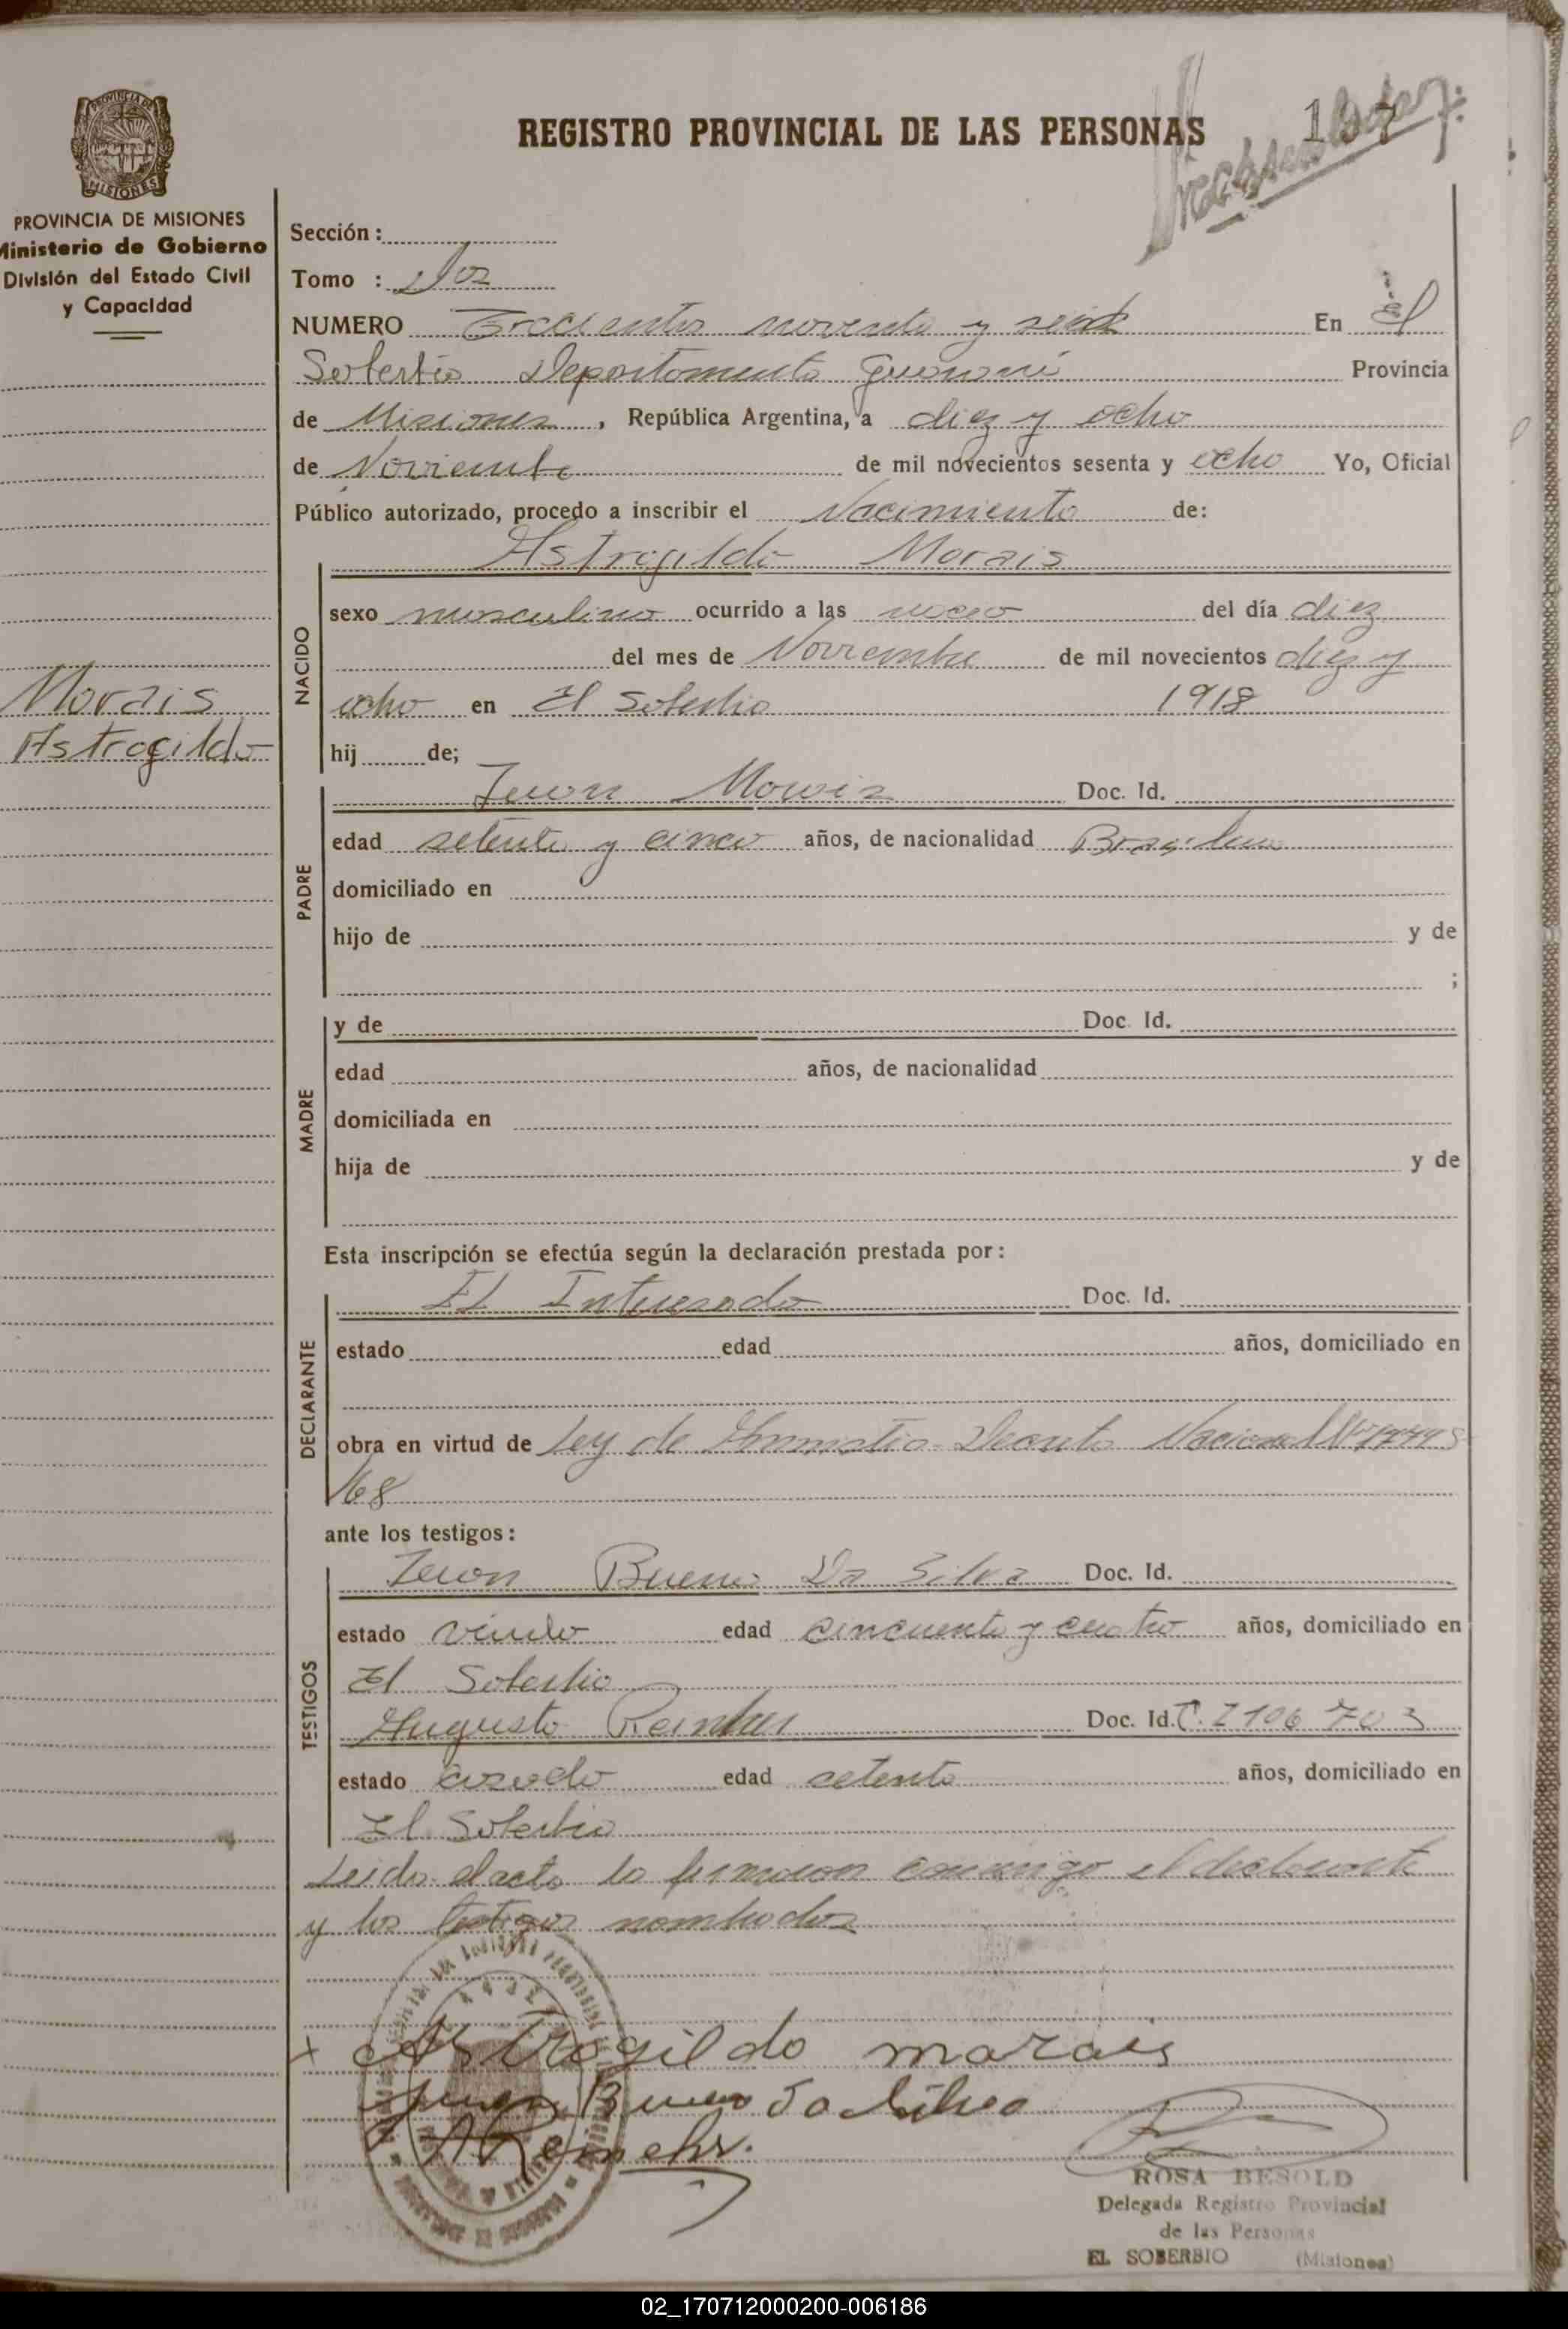 PROVINCIA DE MISIONES
REGISTRO PROVINCIAL DE LAS PERSONAS
PROVINCIA DE MISIONES
Ministerio de Gobierno
División del Estado Civil
y Capacidad
Sección :
Tomo : Dos
NUMERO Trescientos noventa y En El
Soberbio Departamento Guaraní Provincia
de Misiones , República Argentina, a diez y ocho
de Noviembre de mil novecientos sesenta y ocho Yo, Oficial
Público autorizado, procedo a inscribir el Nacimiento de:
Astrogildo Morais
NACIDO
sexo masculino ocurrido a las del día diez
del mes de Noviembre de mil novecientos diez y
ocho en El Soberbio 1918
Morais
Astrogildo
hij de;
PADRE
Juan Morais Doc. Id.
edad setenta y cinco años, de nacionalidad Brasilera
domiciliado en
hijo de y de
;
MADRE
y de Doc. Id.
edad años, de nacionalidad
domiciliada en
hija de y de
Esta inscripción se efectúa según la declaración prestada por :
DECLARANTE
El Interesado Doc. Id.
estado edad años, domiciliado en
obra en virtud de Ley de Amnistia - Decreto Nacional Nº
/68
ante los testigos :
TESTIGOS
Juan Bueno Da Silva Doc. Id.
estado viudo edad cincuenta y cuatro años, domiciliado en
El Soberbio
Augusto Reinehr Doc. Id. C. I 106 703
estado casado edad setenta años, domiciliado en
El Soberbio
Leida el acta la firmaron conmigo el declarante
y los testigos nombrados
+ Astrogildo morais
Juan Bueno da Silva
A Reinehr.
ROSA BESOLD
Delegada Registro Provincial
de las Personas
EL SOBERBIO (Misiones)
02_170712000200-006186